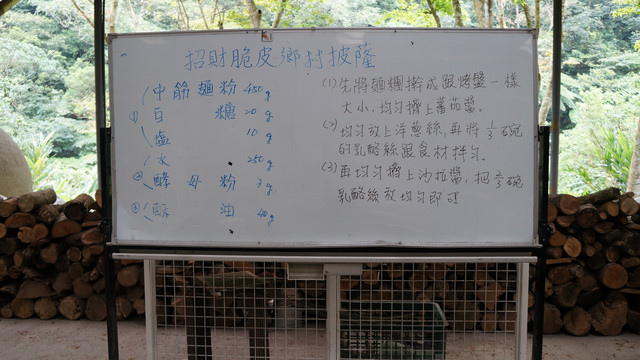 招財脆皮鄉村披薩
中筋麵粉 450g
① 白糖 20g
鹽 10g
水 250g
② 酵母粉 3g
③ 油 40g
(1) 先將麵糰擀成跟烤盤一樣
大小，均勻擠上蕃茄醬。
(2) 均勻放上洋蔥絲，再將 1/3 碗
的乳酪絲跟食材拌勻。
(3) 再均勻擠上沙拉醬，把 2/3 碗
乳酪絲放均勻即可